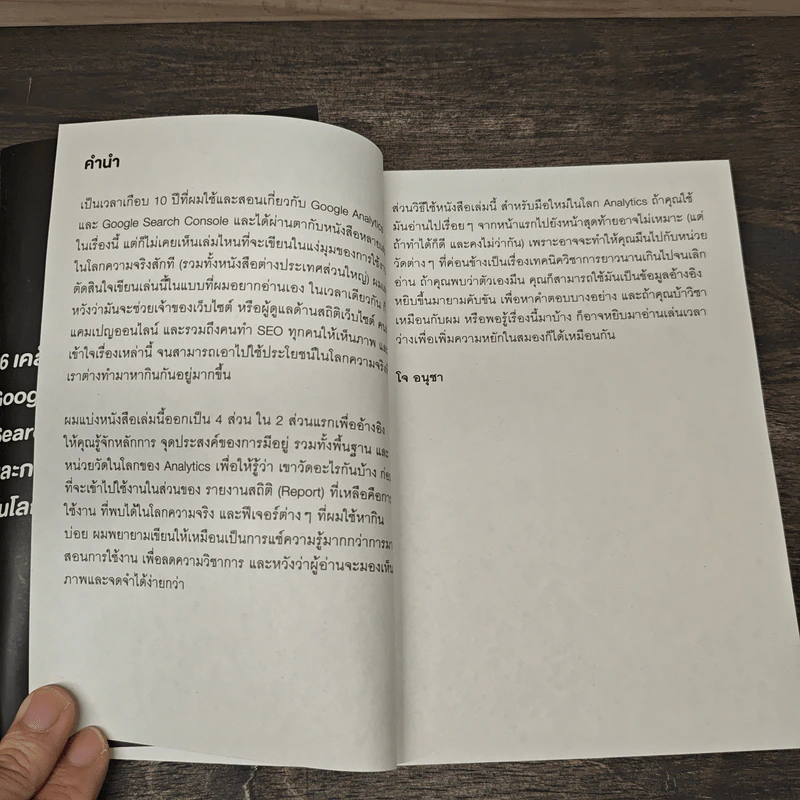 คำนำ
เป็นเวลาเกือบ 10 ปีที่ผมใช้และสอนเกี่ยวกับ Google Analytics
และ Google Search Console และได้ผ่านตากับหนังสือหลายเล่ม
ในเรื่องนี้ แต่ก็ไม่เคยเห็นเล่มไหนที่จะเขียนในแง่มุมของการใช้งาน
ในโลกความจริงสักที (รวมทั้งหนังสือต่างประเทศส่วนใหญ่)
ตัดสินใจเขียนเล่มนี้ในแบบที่ผมอยากอ่านเอง ในเวลาเดียวกัน
หวังว่ามันจะช่วยเจ้าของเว็บไซต์ หรือผู้ดูแลด้านสถิติเว็บไซต์
แคมเปญออนไลน์ และรวมถึงคนทำ SEO ทุกคนให้เห็นภาพ และ
เข้าใจเรื่องเหล่านี้ จนสามารถเอาไปใช้ประโยชน์ในโลกความจริงที่
เราต่างทำมาหากินกันอยู่มากขึ้น
ผมแบ่งหนังสือเล่มนี้ออกเป็น 4 ส่วน ใน 2 ส่วนแรกเพื่ออ้างอิง
ให้คุณรู้จักหลักการ จุดประสงค์ของการมีอยู่ รวมทั้งพื้นฐาน และ
หน่วยวัดในโลกของ Analytics เพื่อให้รู้ว่า เขาวัดอะไรกันบ้าง ก่อน
ที่จะเข้าไปใช้งานในส่วนของ รายงานสถิติ (Report) ที่เหลือคือการ
ใช้งาน ที่พบได้ในโลกความจริง และฟีเจอร์ต่างๆ ที่ผมใช้หากิน
บ่อย ผมพยายามเขียนให้เหมือนเป็นการแชร์ความรู้มากกว่าการมา
สอนการใช้งาน เพื่อลดความวิชาการ และหวังว่าผู้อ่านจะมองเห็น
ภาพและจดจำได้ง่ายกว่า
ส่วนวิธีใช้หนังสือเล่มนี้ สำหรับมือใหม่ในโลก Analytics ถ้าคุณใช้
มันอ่านไปเรื่อยๆ จากหน้าแรกไปยังหน้าสุดท้ายอาจไม่เหมาะ (แต่
ถ้าทำได้ก็ดี และคงไม่ว่ากัน) เพราะอาจจะทำให้คุณมึนไปกับหน่วย
วัดต่างๆ ที่ค่อนข้างเป็นเรื่องเทคนิควิชาการยาวนานเกินไปจนเลิก
อ่าน ถ้าคุณพบว่าตัวเองมึน คุณก็สามารถใช้มันเป็นข้อมูลอ้างอิง
หยิบขึ้นมายามคับขัน เพื่อหาคำตอบบางอย่าง และถ้าคุณบ้าวิชา
เหมือนกับผม หรือพอรู้เรื่องนี้มาบ้าง ก็อาจหยิบมาอ่านเล่นเวลา
ว่างเพื่อเพิ่มความหยักในสมองก็ได้เหมือนกัน
โจ อนุชา